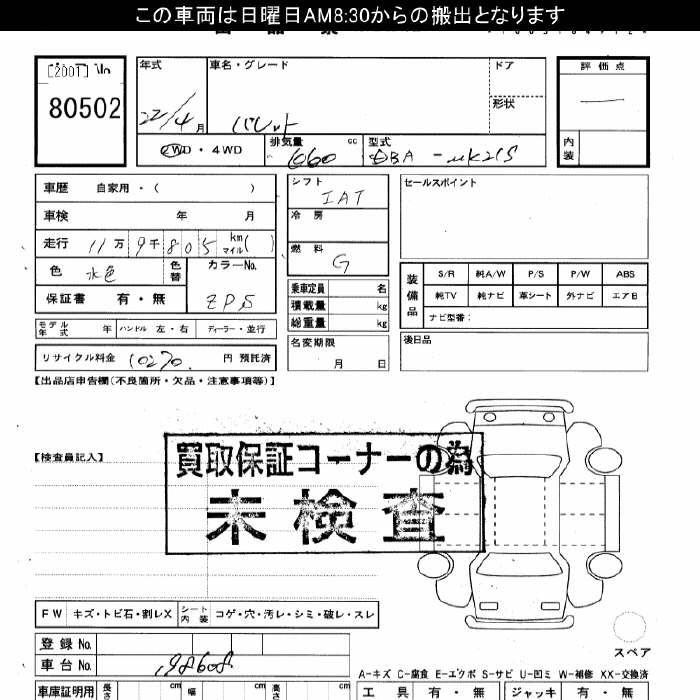 この車両は日曜日AM8:30からの搬出となります
[2001] No
80502
年式
22/4月
車名・グレード
パレット
ドア
形状
評価点
内装
2WD・4WD
排気量
660
cc
型式
DBA - MK21S
車歴 自家用・( )
車検 年 月
走行 11万9千805 km マイル( )
色 水色 色替
カラーNo.
ZPS
保証書 有・無
モデル年式 年 ハンドル 左・右 ディーラー・並行
リサイクル料金 10270 円 預託済
シフト
IAT
冷房
燃料
G
乗車定員 名
積載量 kg
総重量 kg
名変期限
月 日
セールスポイント
装備品
S/R 純A/W P/S P/W ABS
純TV 純ナビ 革シート 外ナビ エアB
ナビ型番:
後日品
【出品店申告欄(不良箇所・欠品・注意事項等)】
【検査員記入】
買取保証コーナーの為
未検査
FW キズ・トビ石・割レX シート内装 コゲ・穴・汚レ・シミ・破レ・スレ
スペア
登録No.
車台No. 198608
A-キズ C-腐食 E-エクボ S-サビ U-凹ミ W-補修 XX-交換済
車庫証明用 長さ cm 幅 cm 高さ cm
工具 有・無 ジャッキ 有・無